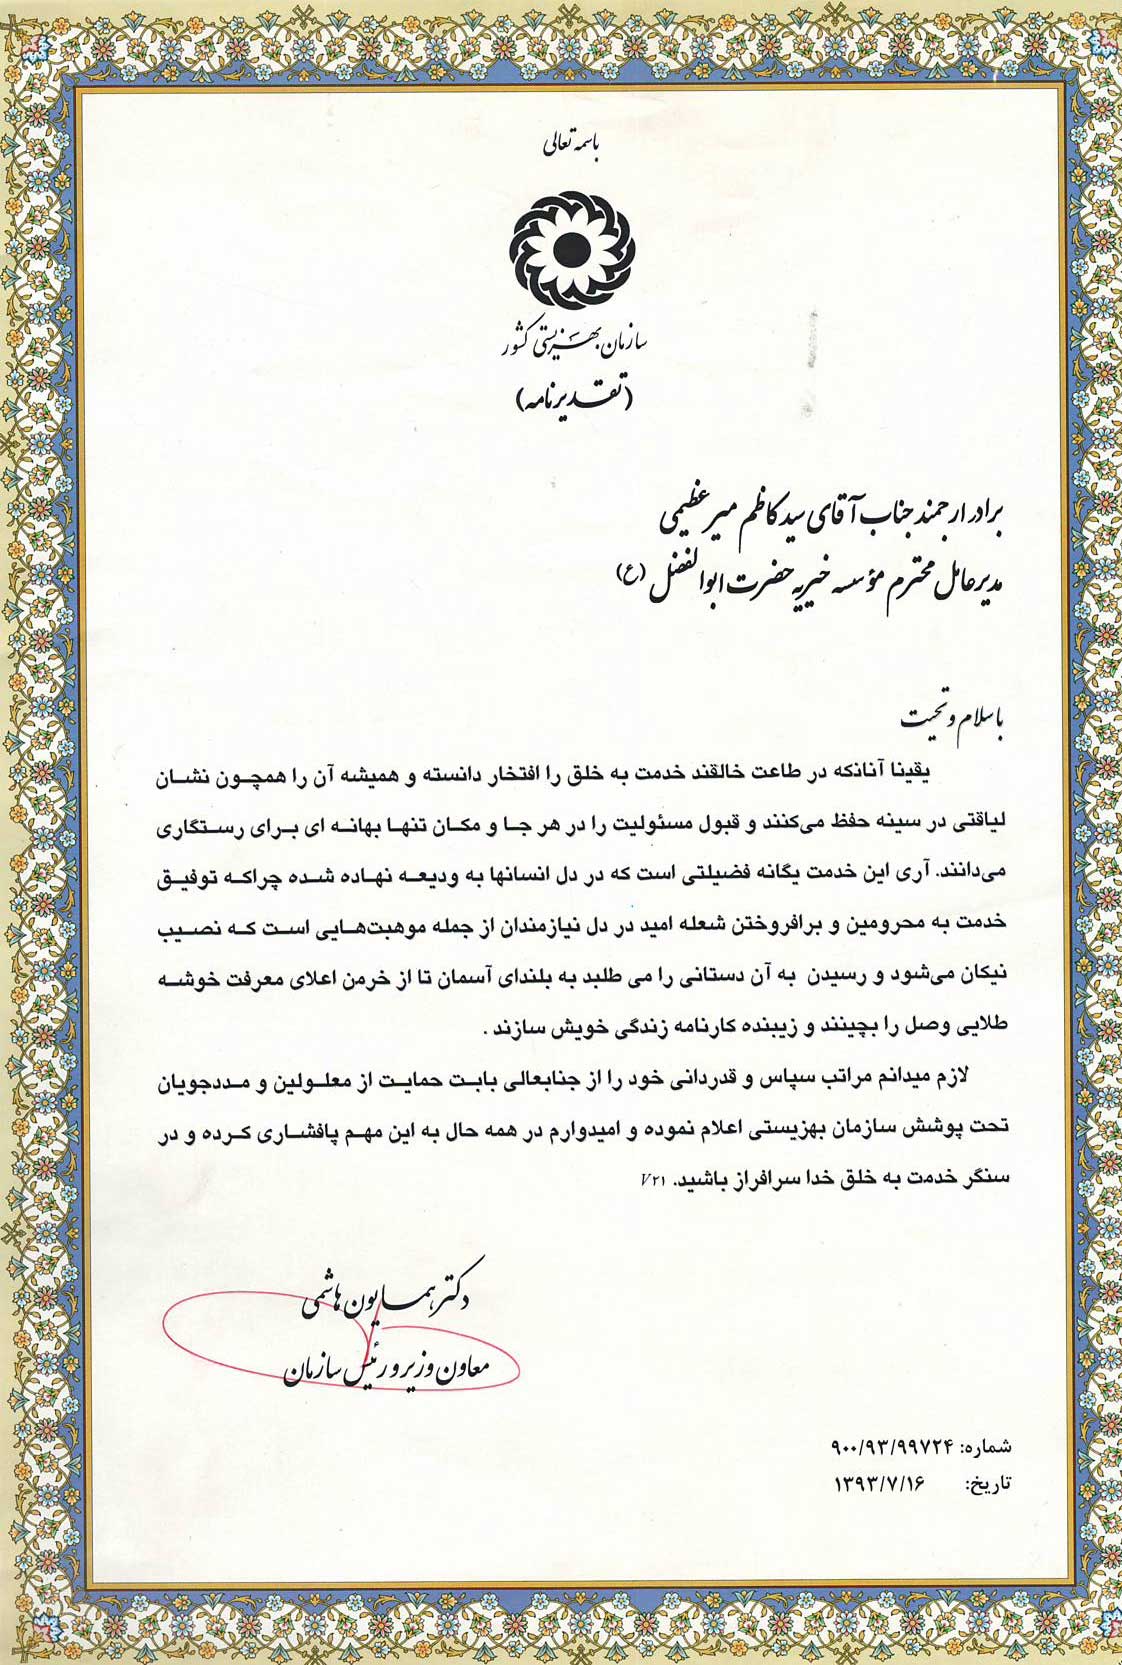 باسمه تعالی
سازمان بهزیستی کشور
(تقدیرنامه)
برادر ارجمند جناب آقای سید کاظم میرعظیمی
مدیرعامل محترم مؤسسه خیریه حضرت ابوالفضل (ع)
با سلام و تحیت
یقینا آنانکه در طاعت خالقند خدمت به خلق را افتخار دانسته و همیشه آن را همچون نشان
لیاقتی در سینه حفظ می‌کنند و قبول مسئولیت را در هر جا و مکان تنها بهانه ای برای رستگاری
می‌دانند. آری این خدمت یگانه فضیلتی است که در دل انسانها به ودیعه نهاده شده چراکه توفیق
خدمت به محرومین و برافروختن شعله امید در دل نیازمندان از جمله موهبت‌هایی است که نصیب
نیکان می‌شود و رسیدن به آن دستانی را می طلبد به بلندای آسمان تا از خرمن اعلای معرفت خوشه
طلایی وصل را بچینند و زیبنده کارنامه زندگی خویش سازند .
لازم میدانم مراتب سپاس و قدردانی خود را از جنابعالی بابت حمایت از معلولین و مددجویان
تحت پوشش سازمان بهزیستی اعلام نموده و امیدوارم در همه حال به این مهم پافشاری کرده و در
سنگر خدمت به خلق خدا سرافراز باشید. ۷۲۱
دکتر همایون هاشمی
معاون وزیر و رئیس سازمان
شماره: ۹۰۰/۹۳/۹۹۷۲۴
تاریخ: ۱۳۹۳/۷/۱۶